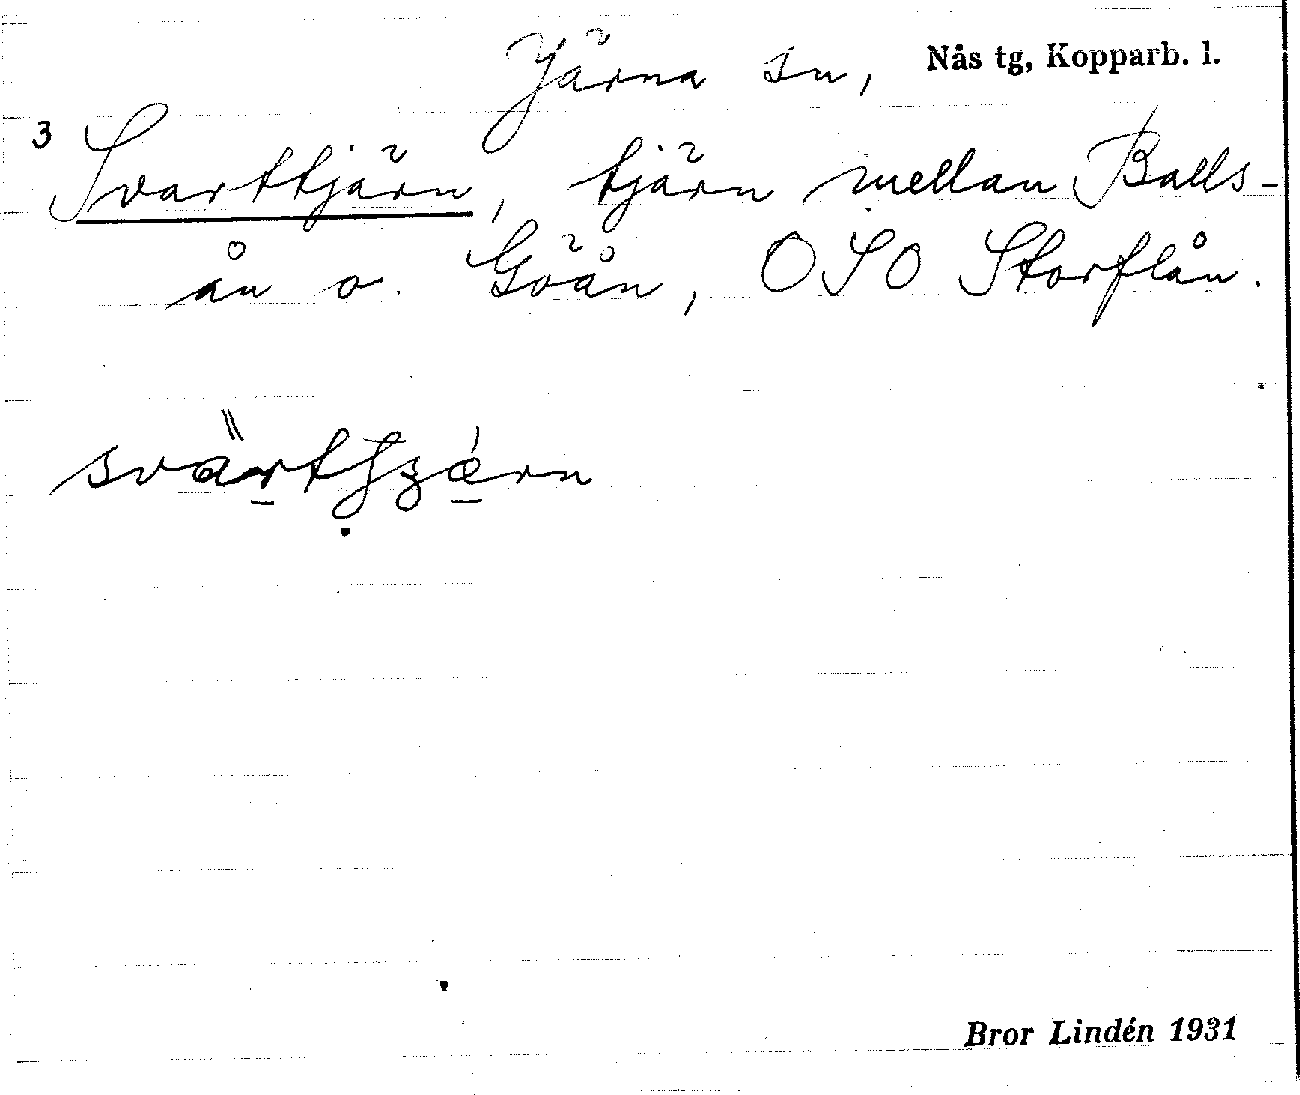 Järna sn, Nås tg, Kopparb. l.
3 Svarttjärn, tjärn mellan Balls-
ån o. Göån, OSO Storflån.
Bror Lindén 1931